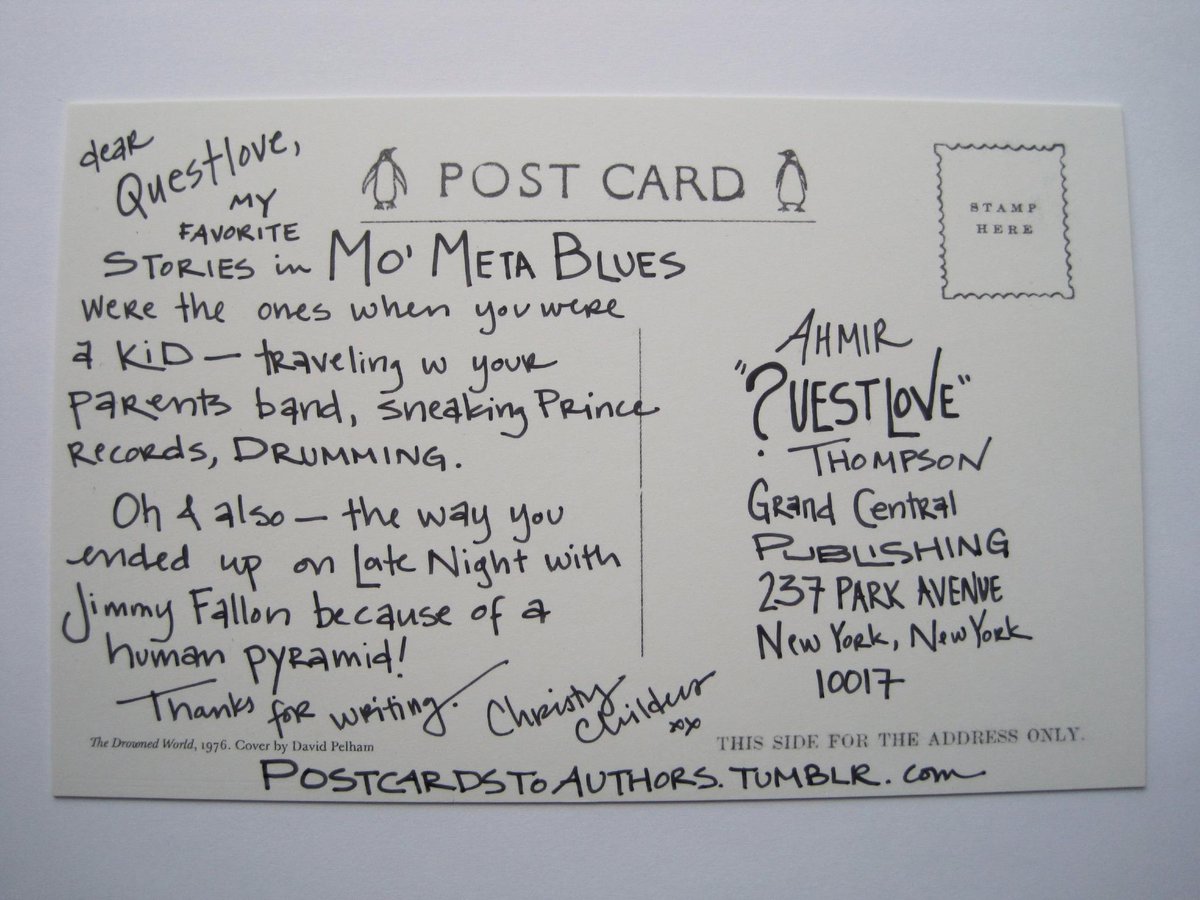 POST CARD
STAMP
HERE
dear
Questlove,
MY
FAVORITE
STORIES in MO' META BLUES
were the ones when you were
a KiD — traveling w your
parents band, sneaking Prince
records, DRUMMING.
Oh & also — the way you
ended up on Late Night with
Jimmy Fallon because of a
human pyramid!
Thanks for writing.
Christy
Childers
xx
AHMIR
"?UESTLOVE"
THOMPSON
Grand Central
PUBLISHING
237 PARK AVENUE
New York, New York
10017
The Drowned World, 1976. Cover by David Pelham
THIS SIDE FOR THE ADDRESS ONLY.
POSTCARDSTOAUTHORS.TUMBLR.com